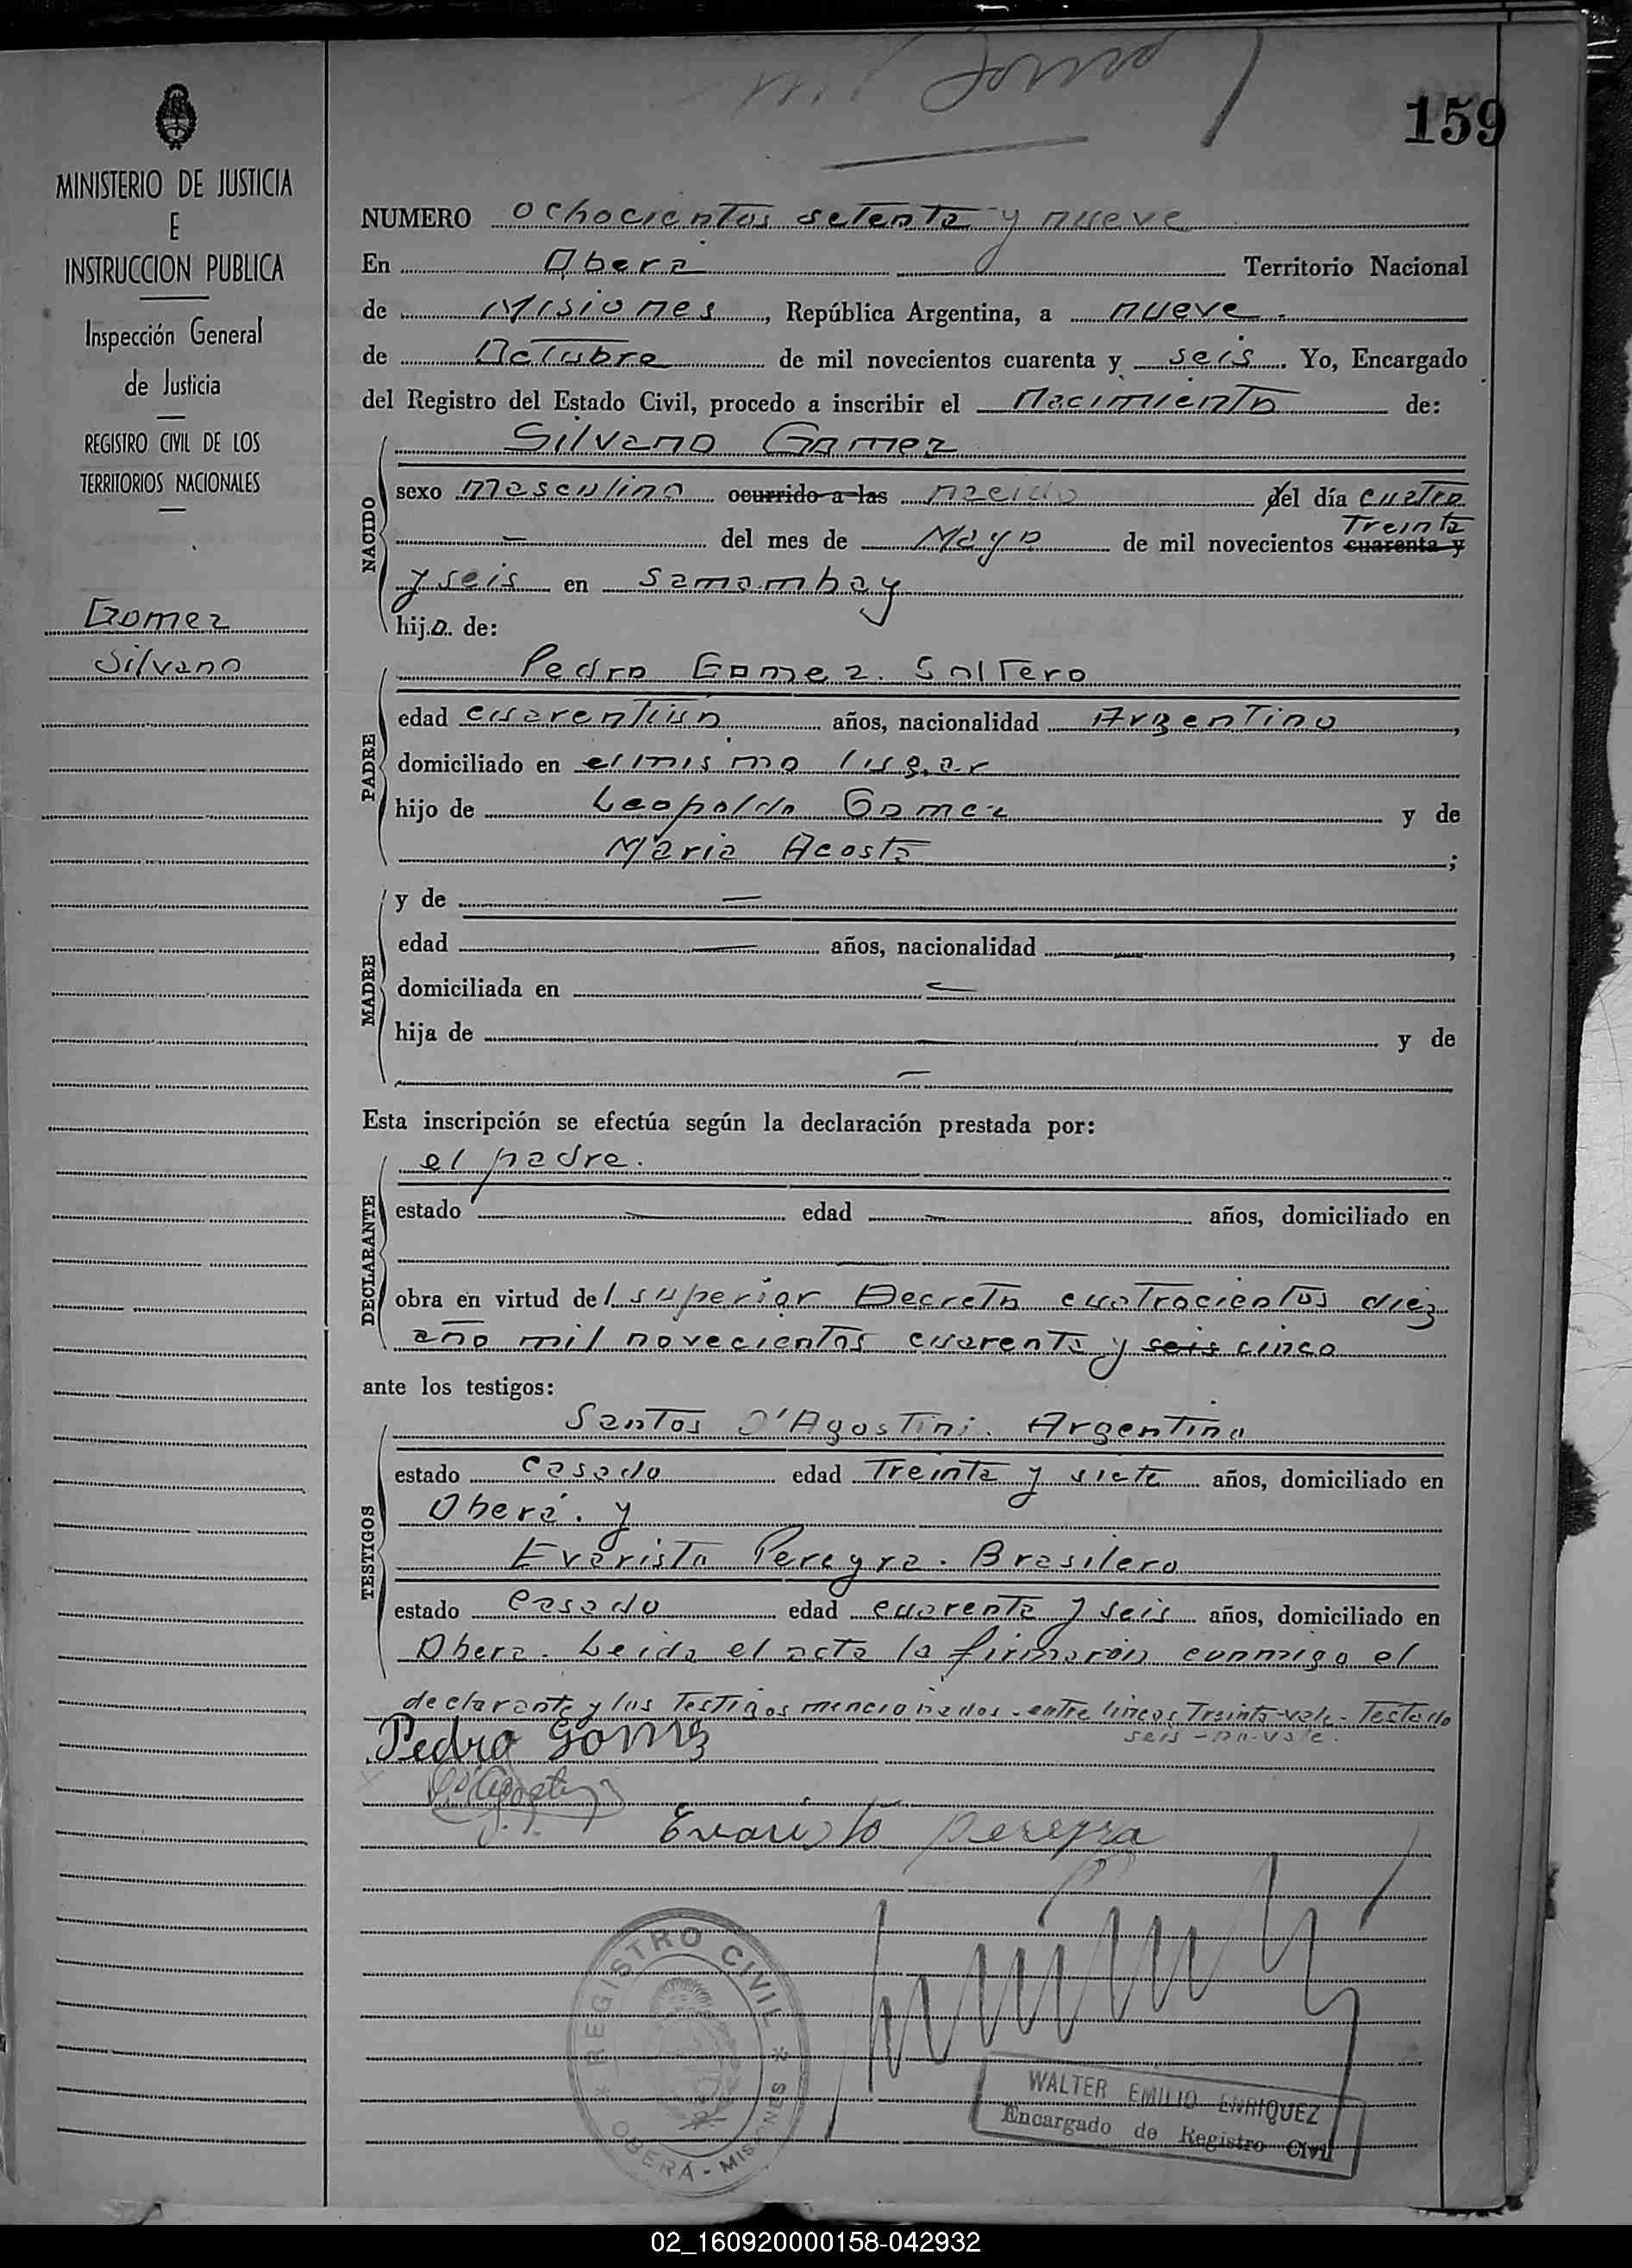 159
MINISTERIO DE JUSTICIA
E
INSTRUCCION PUBLICA
Inspección General
de Justicia
REGISTRO CIVIL DE LOS
TERRITORIOS NACIONALES
Gomez
Silvano
NUMERO ochocientos setenta y nueve
En Oberá Territorio Nacional
de Misiones, República Argentina, a nueve.
de Octubre de mil novecientos cuarenta y seis. Yo, Encargado
del Registro del Estado Civil, procedo a inscribir el Nacimiento de:
Silvano Gomez
NACIDO
sexo masculino ocurrido a las nacido del día cuatro
Treinta
— del mes de Mayo de mil novecientos cuarenta y
y seis en Samambay
hijo de:
Pedro Gomez. Soltero
PADRE
edad cuarentiun años, nacionalidad Argentino,
domiciliado en el mismo lugar
hijo de Leopoldo Gomez y de
Maria Acosta;
MADRE
y de —
edad — años, nacionalidad —,
domiciliada en —
hija de — y de
—
Esta inscripción se efectúa según la declaración prestada por:
el padre.
DECLARANTE
estado — edad — años, domiciliado en
—
obra en virtud del superior Decreto cuatrocientos diez
año mil novecientos cuarenta y seis cinco
ante los testigos:
Santos D'Agostini. Argentino
TESTIGOS
estado casado edad Treinta y siete años, domiciliado en
Oberá. y
Evaristo Pereyra. Brasilero
estado casado edad cuarenta y seis años, domiciliado en
Oberá. Leida el acta la firmaron conmigo el
declarante y los Testigos mencionados - entre lineas Treinta - vale - Testado
seis - no vale.
Pedro Gomez
Evaristo Pereyra
REGISTRO CIVIL
OBERÁ - MISIONES
WALTER EMILIO ENRIQUEZ
Encargado de Registro Civil
02_160920000158-042932